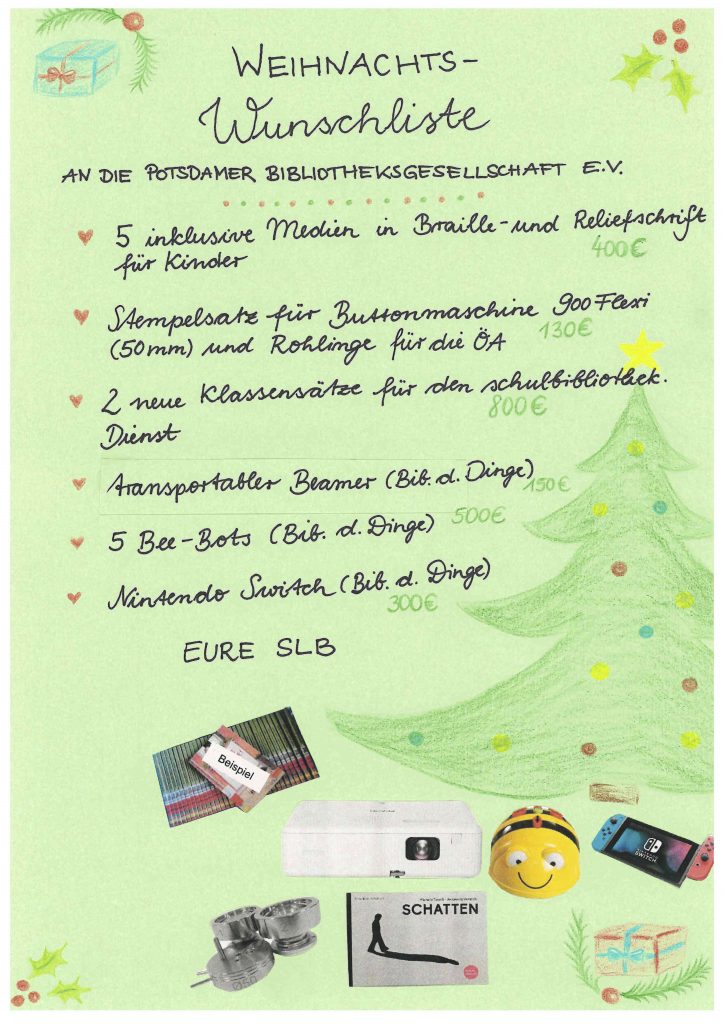 WEIHNACHTS-
Wunschliste
AN DIE POTSDAMER BIBLIOTHEKSGESELLSCHAFT E.V.
5 inklusive Medien in Braille- und Reliefschrift
400€
für Kinder
Stempelsatz für Buttonmaschine 900 Flexi
130€
(50mm) und Rohlinge für die ÖA
2 neue Klassensätze für den schulbibliothek.
800€
Dienst
transportabler Beamer (Bib. d. Dinge)
150€
5 Bee-Bots (Bib. d. Dinge)
500€
Nintendo Switch (Bib. d. Dinge)
300€
EURE SLB
Beispiel
SWITCH
SCHATTEN
Ø50